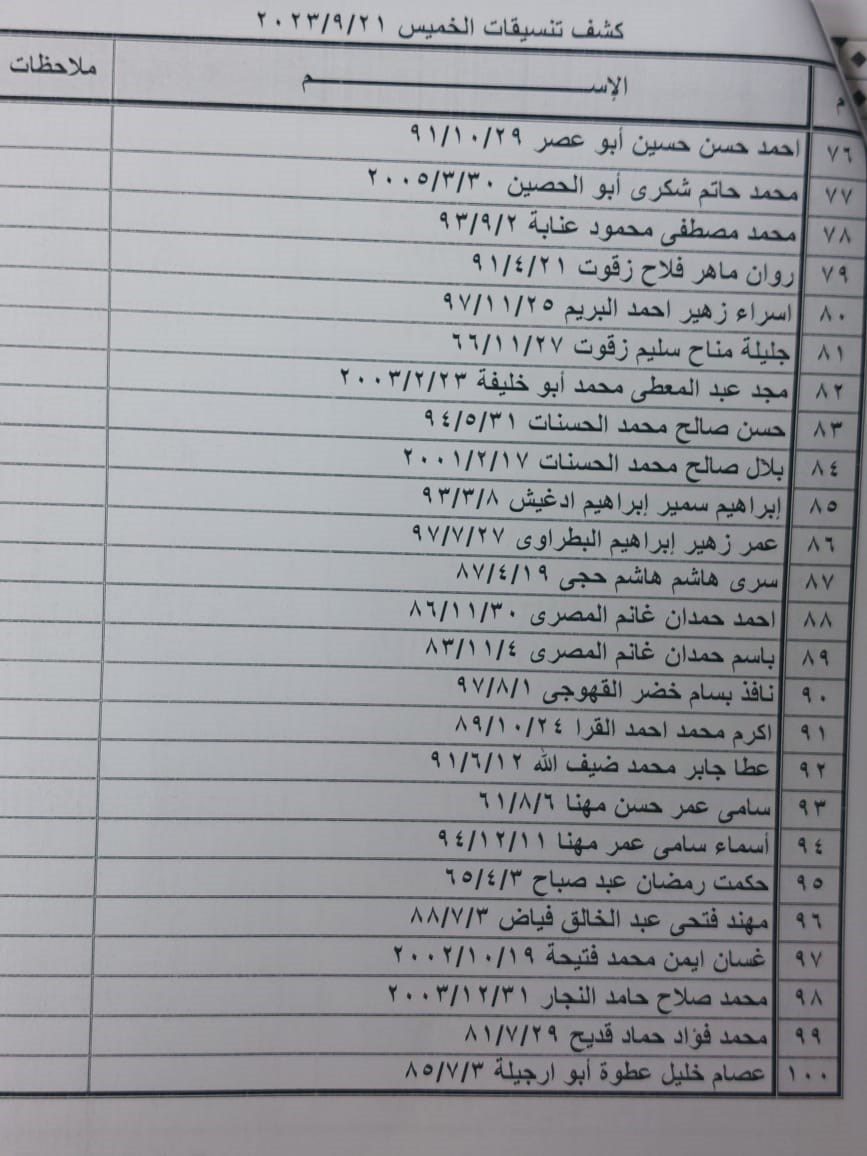 كشف تنسيقات الخميس ٢٠٢٣/٩/٢١
م الإســـــــــــم ملاحظات
٧٦ احمد حسن حسين أبو عصر ٩١/١٠/٢٩
٧٧ محمد حاتم شكرى أبو الحصين ٢٠٠٥/٣/٣٠
٧٨ محمد مصطفى محمود عنابة ٩٣/٩/٢
٧٩ روان ماهر فلاح زقوت ٩١/٤/٢١
٨٠ اسراء زهير احمد البريم ٩٧/١١/٢٥
٨١ جليلة مناح سليم زقوت ٦٦/١١/٢٧
٨٢ مجد عبد المعطى محمد أبو خليفة ٢٠٠٣/٢/٢٣
٨٣ حسن صالح محمد الحسنات ٩٤/٥/٣١
٨٤ بلال صالح محمد الحسنات ٢٠٠١/٢/١٧
٨٥ إبراهيم سمير إبراهيم ادغيش ٩٣/٣/٨
٨٦ عمر زهير إبراهيم البطراوى ٩٧/٧/٢٧
٨٧ سرى هاشم هاشم حجى ٨٧/٤/١٩
٨٨ احمد حمدان غانم المصرى ٨٦/١١/٣٠
٨٩ باسم حمدان غانم المصرى ٨٣/١١/٤
٩٠ نافذ بسام خضر القهوجى ٩٧/٨/١
٩١ اكرم محمد احمد القرا ٨٩/١٠/٢٤
٩٢ عطا جابر محمد ضيف الله ٩١/٦/١٢
٩٣ سامى عمر حسن مهنا ٦١/٨/٦
٩٤ أسماء سامى عمر مهنا ٩٤/١٢/١١
٩٥ حكمت رمضان عبد صباح ٦٥/٤/٣
٩٦ مهند فتحى عبد الخالق فياض ٨٨/٧/٣
٩٧ غسان ايمن محمد فتيحة ٢٠٠٢/١٠/١٩
٩٨ محمد صلاح حامد النجار ٢٠٠٣/١٢/٣١
٩٩ محمد فؤاد حماد قديح ٨١/٧/٢٩
١٠٠ عصام خليل عطوة أبو ارجيلة ٨٥/٧/٣